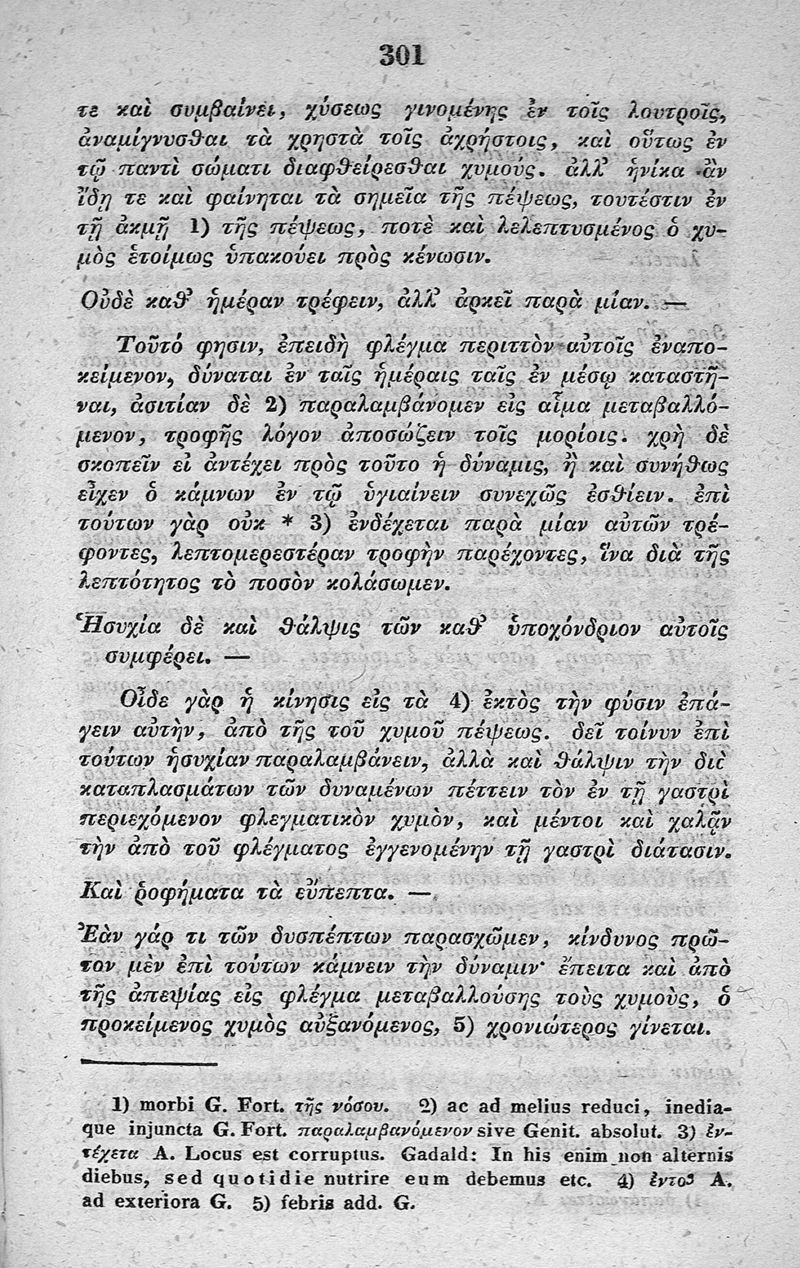 301
τε καὶ συμβαίνει, χύσεως γινομένης ἐν τοῖς λουτροῖς,
ἀναμίγνυσθαι τὰ χρηστὰ τοῖς ἀχρήστοις, καὶ οὕτως ἐν
τῷ παντὶ σώματι διαφθείρεσθαι χυμούς. ἀλλ’ ἡνίκα ἂν
ἴδῃ τε καὶ φαίνηται τὰ σημεῖα τῆς πέψεως, τουτέστιν ἐν
τῇ ἀκμῇ 1) τῆς πέψεως, ποτὲ καὶ λελεπτυσμένος ὁ χυ-
μὸς ἑτοίμως ὑπακούει πρὸς κένωσιν.
Οὐδὲ καθ’ ἡμέραν τρέφειν, ἀλλ’ ἀρκεῖ παρὰ μίαν. —
Τοῦτό φησιν, ἐπειδὴ φλέγμα περιττὸν αὐτοῖς ἐναπο-
κείμενον, δύναται ἐν ταῖς ἡμέραις ταῖς ἐν μέσῳ καταστῆ-
ναι, ἀσιτίαν δὲ 2) παραλαμβάνομεν εἰς αἷμα μεταβαλλό-
μενον, τροφῆς λόγον ἀποσώζειν τοῖς μορίοις. χρὴ δὲ
σκοπεῖν εἰ ἀντέχει πρὸς τοῦτο ἡ δύναμις, ἢ καὶ συνήθως
εἶχεν ὁ κάμνων ἐν τῷ ὑγιαίνειν συνεχῶς ἐσθίειν. ἐπὶ
τούτων γὰρ οὐκ * 3) ἐνδέχεται παρὰ μίαν αὐτῶν τρέ-
φοντες, λεπτομερεστέραν τροφὴν παρέχοντες, ἵνα διὰ τῆς
λεπτότητος τὸ ποσὸν κολάσωμεν.
Ἡσυχία δὲ καὶ θάλψις τῶν καθ’ ὑποχόνδριον αὐτοῖς
συμφέρει. —
Οἶδε γὰρ ἡ κίνησις εἰς τὰ 4) ἐκτὸς τὴν φύσιν ἐπά-
γειν αὐτὴν, ἀπὸ τῆς τοῦ χυμοῦ πέψεως. δεῖ τοίνυν ἐπὶ
τούτων ἡσυχίαν παραλαμβάνειν, ἀλλὰ καὶ θάλψιν τὴν διὰ
καταπλασμάτων τῶν δυναμένων πέττειν τὸν ἐν τῇ γαστρὶ
περιεχόμενον φλεγματικὸν χυμὸν, καὶ μέντοι καὶ χαλᾷν
τὴν ἀπὸ τοῦ φλέγματος ἐγγενομένην τῇ γαστρὶ διάτασιν.
Καὶ ῥοφήματα τὰ εὔπεπτα. —
Ἐὰν γάρ τι τῶν δυσπέπτων παρασχῶμεν, κίνδυνος πρῶ-
τον μὲν ἐπὶ τούτων κάμνειν τὴν δύναμιν· ἔπειτα καὶ ἀπὸ
τῆς ἀπεψίας εἰς φλέγμα μεταβαλλούσης τοὺς χυμοὺς, ὁ
προκείμενος χυμὸς αὐξανόμενος, 5) χρονιώτερος γίνεται.
1) morbi G. Fort. τῆς νόσου. 2) ac ad melius reduci, inedia-
que injuncta G. Fort. παραλαμβανόμενον sive Genit. absolut. 3) ἐν-
τέχεται A. Locus est corruptus. Gadald: In his enim non alternis
diebus, sed quotidie nutrire eum debemus etc. 4) ἐντος A.
ad exteriora G. 5) febris add. G.